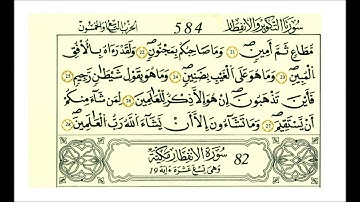 سورتا التكوير والانفطار 584 الحزب التاسع والخمسون
مُّطَاعٍ ثَمَّ أَمِينٍ 21 وَمَا صَاحِبُكُم بِمَجْنُونٍ 22 وَلَقَدْ رَءَاهُ بِالْأُفُقِ
الْمُبِينِ 23 وَمَا هُوَ عَلَى الْغَيْبِ بِضَنِينٍ 24 وَمَا هُوَ بِقَوْلِ شَيْطَانٍ رَّجِيمٍ 25
فَأَيْنَ تَذْهَبُونَ 26 إِنْ هُوَ إِلَّا ذِكْرٌ لِّلْعَالَمِينَ 27 لِمَن شَاءَ مِنكُمْ
أَن يَسْتَقِيمَ 28 وَمَا تَشَاءُونَ إِلَّا أَن يَشَاءَ اللَّهُ رَبُّ الْعَالَمِينَ 29
82 سُورَةُ الِانْفِطَارِ مَكِّيَّة
وَهْيَ تِسْعَ عَشَرَةَ ءَايَة 19